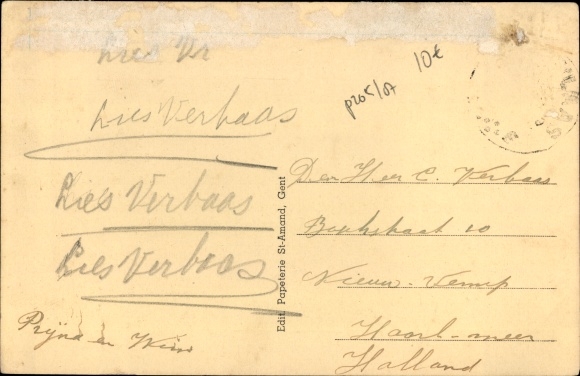 Lies Ve
Lies Verbaas
Lies Verbaas
Lies Verbaas
Prijna en Wim
Edit. Papeterie St-Amand, Gent
prov/07
10€
Den Heer C. Verbaas
10
Nieuw-Vennep
Haarl-meer
Holland